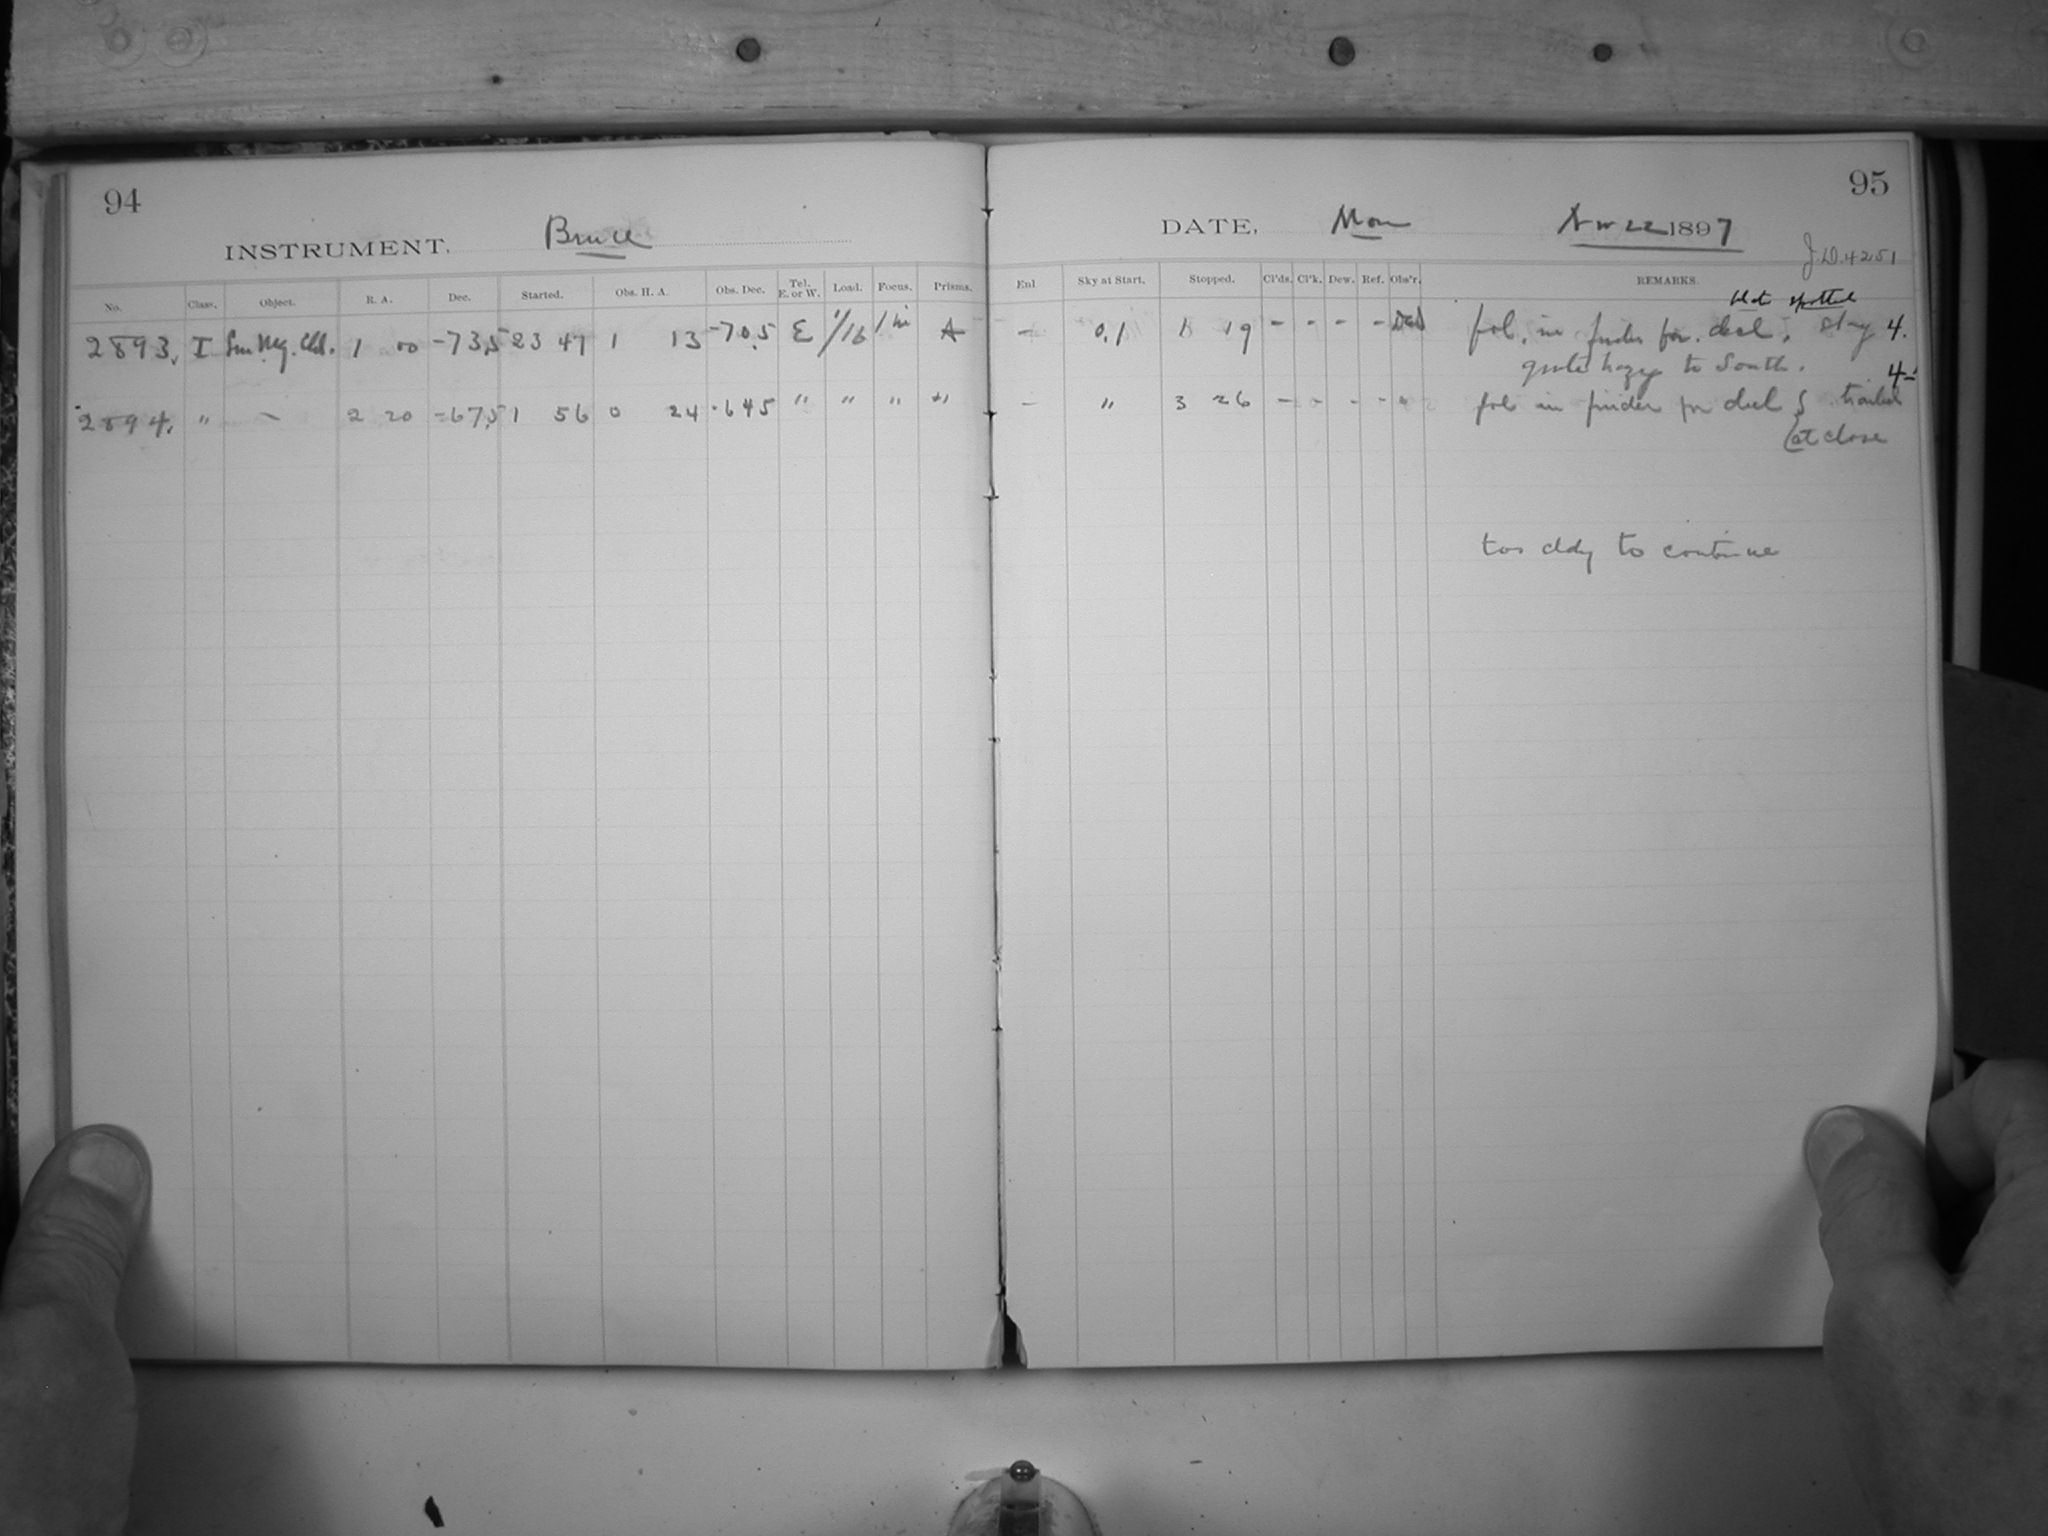 94
INSTRUMENT, Bruce
No. Class. Object. R. A. Dec. Started. Obs. H. A. Obs. Dec. Tel. E. or W. Load. Focus. Prisms.
2893. I Sm. Mg. Cld. 1 00 -73.5 23 47 1 13 -70.5 E 1/16 A
2894. " – 2 20 -67.5 1 56 0 24 -64.5 " " " "
95
DATE, Mon Nov 22 1897
J.D. 4251
Enl Sky at Start. Stopped. Cl'ds. Cl'k. Dew. Ref. Obs'r. REMARKS.
plate spotted
– 0.1 1 19 - - - - fol. in finder for decl. 4.
quite hazy to South.
4-
– " 3 26 - - - - " fol in finder for decl & trailed
at close
too cldy to continue